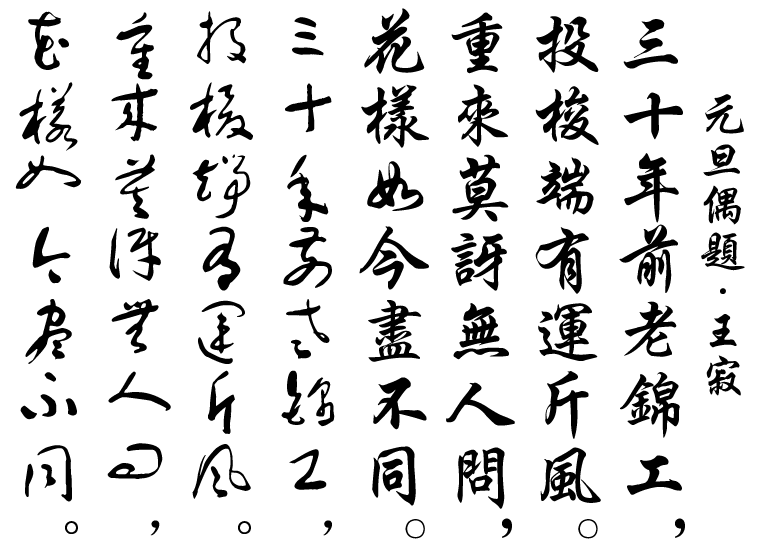 元旦偶題·王寂
三十年前老錦工，
投梭端有運斤風。
重來莫訝無人問，
花樣如今盡不同。
三十年前老錦工，
投梭端有運斤風。
重來莫訝無人問，
花樣如今盡不同。